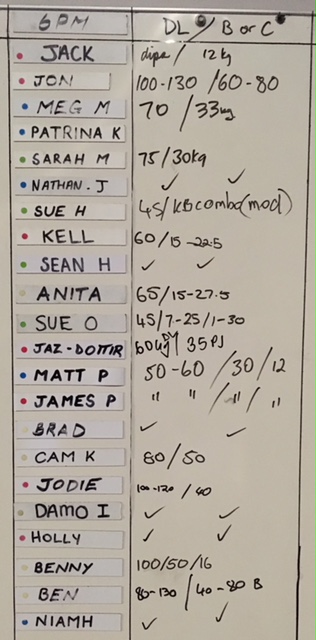 6PM DL / B or C
JACK dips / 12kg
JON 100-130 / 60-80
MEG M 70 / 33kg
PATRINA K
SARAH M 75/30kg
NATHAN.J ✓ ✓
SUE H 45/KBcombo(mod)
KELL 60/15-22.5
SEAN H ✓ ✓
ANITA 65/15-27.5
SUE O 45/7-25/1-30
JAZ-DOTTIR 60kg / 35
MATT P 50-60 / 30 / 12
JAMES P " " / " / "
BRAD ✓ ✓
CAM K 80/50
JODIE 100-120 / 40
DAMO I ✓ ✓
HOLLY ✓ ✓
BENNY 100/50/16
BEN 80-130 / 40-80 B
NIAMH ✓ ✓